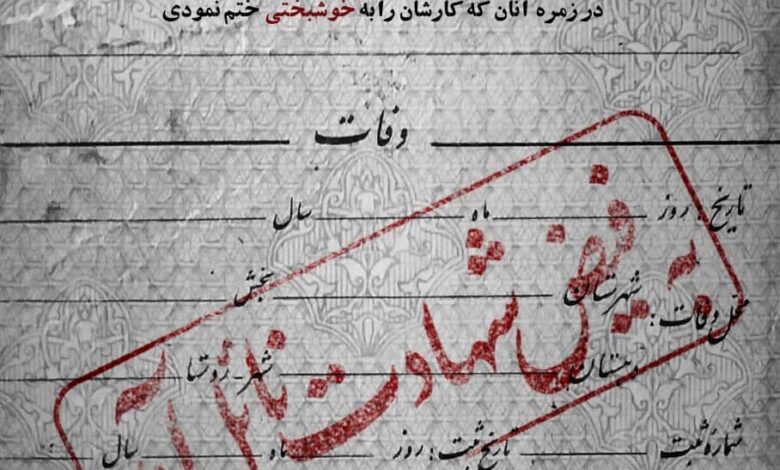 در زمره آنان که کارشان را به خوشبختی ختم نمودی
وفات
تاریخ: روز ماه سال
محل وفات: شهرستان بخش
دهستان شهر - روستا
شماره ثبت تاریخ ثبت: روز ماه سال
به فیض شهادت نائل آمد